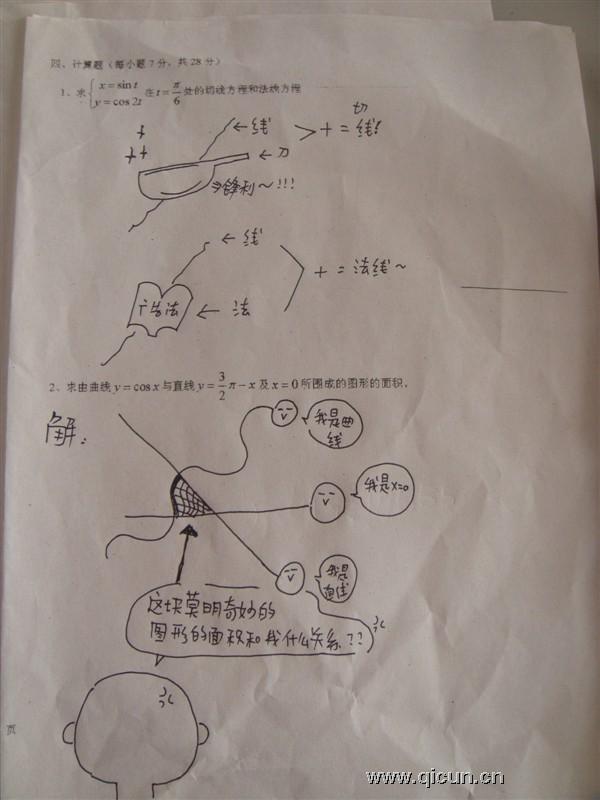 四、计算题（每小题7分，共28分）
1、求{x=sin t y=cos 2t 在t=π/6处的切线方程和法线方程
+
++
←线
←刀
⇒锋利~!!!
切
>+=线!
←线
←法
+=法线~
2、求由曲线y=cos x与直线y=3/2π-x及x=0所围成的图形的面积。
解:
我是曲
线
我是x=0
我是
直线
这块莫明奇妙的
图形的面积和我什么关系??
页
www.qicun.cn